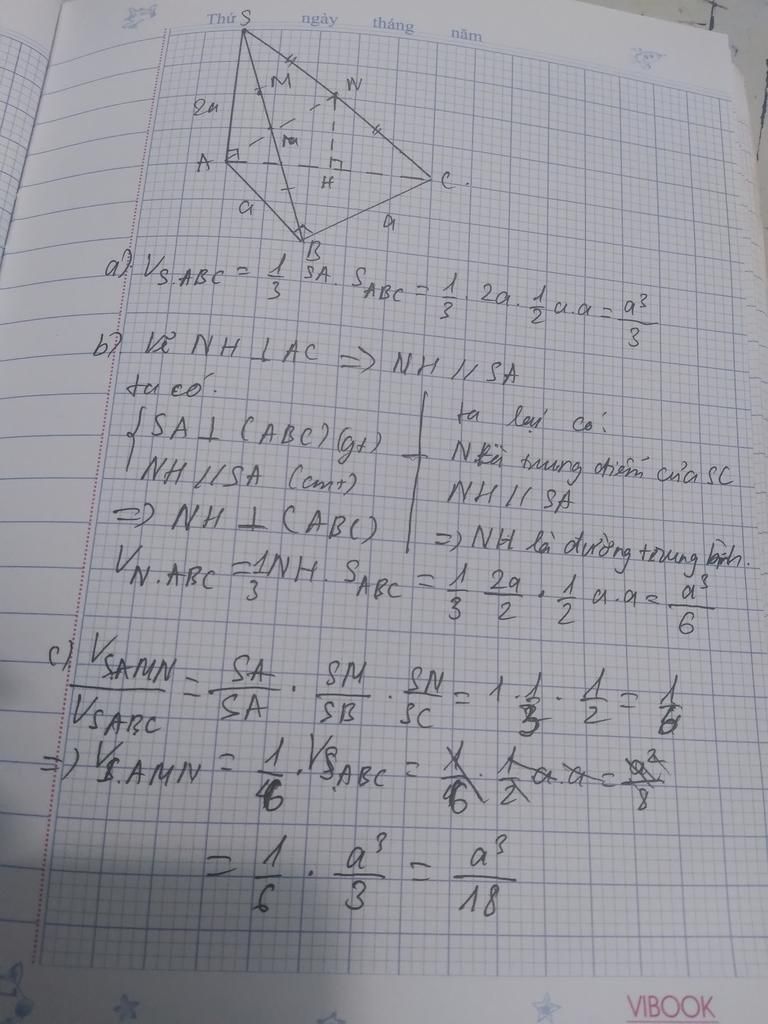 Thứ ngày tháng năm
S
M
N
2a
A
H
C
a
a
B
a) V_{S.ABC} = \frac{1}{3} SA. S_{ABC} = \frac{1}{3} . 2a. \frac{1}{2} a.a = \frac{a^3}{3}
b) Vẽ NH ⊥ AC => NH // SA
ta có:
SA ⊥ (ABC) (gt)
NH // SA (cmt)
=> NH ⊥ (ABC)
ta lại có:
N là trung điểm của SC
NH // SA
=> NH là đường trung bình.
V_{N.ABC} = \frac{1}{3} NH. S_{ABC} = \frac{1}{3} \frac{2a}{2} . \frac{1}{2} a.a = \frac{a^3}{6}
c) \frac{V_{SAMN}}{V_{SABC}} = \frac{SA}{SA} . \frac{SM}{SB} . \frac{SN}{SC} = 1 . \frac{1}{3} . \frac{1}{2} = \frac{1}{6}
=> V_{S.AMN} = \frac{1}{6} . V_{S.ABC} = \frac{1}{6} . \frac{1}{2} a.a = \frac{a^2}{8}
= \frac{1}{6} . \frac{a^3}{3} = \frac{a^3}{18}
VIBOOK